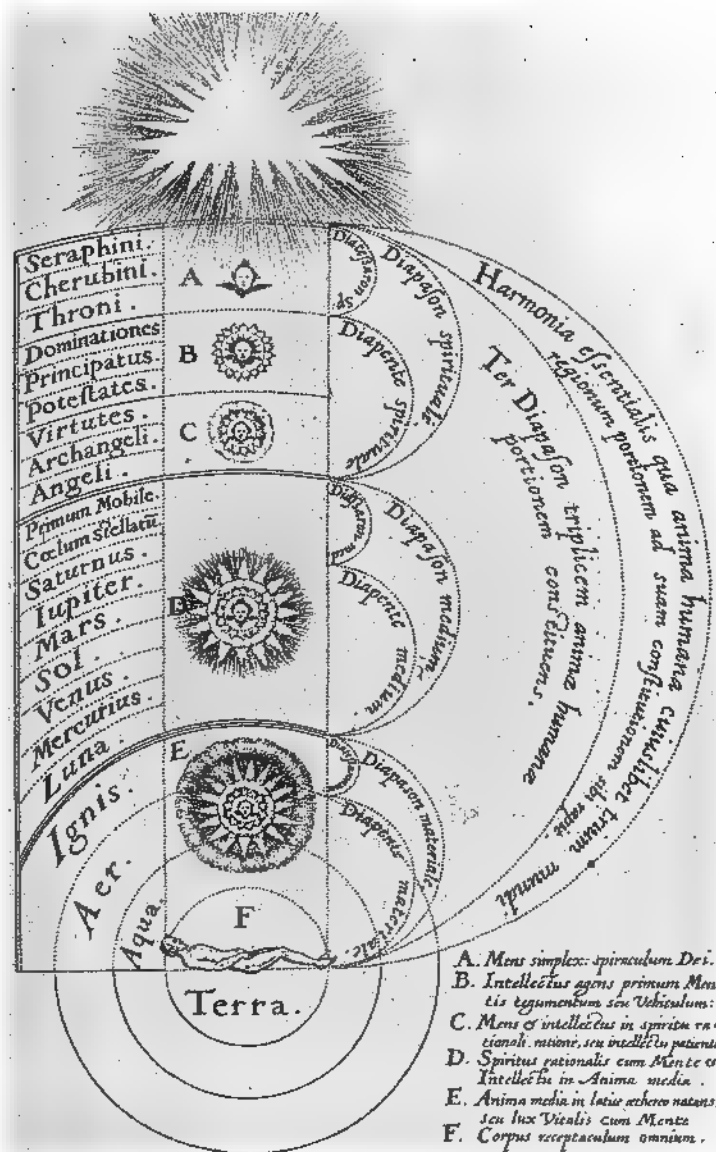 Seraphini.
Cherubini.
Throni.
Dominationes
Principatus.
Poteſtates.
Virtutes.
Archangeli.
Angeli.
Primum Mobile.
Cœlum Stellatū
Saturnus.
Iupiter.
Mars.
Sol.
Venus.
Mercurius.
Luna.
Ignis.
Aer.
Aqua.
Terra.
A
B
C
D
E
F
Diateſſaron sp:
Diapaſon spirituale.
Diapente spirituale
Diapaſon medium.
Diapente medium.
Diapaſon materiale
Diapente materiale.
Ter Diapaſon triplicem animæ humanæ
portionem constituens.
Harmonia eſſentialis qua anima humana cuiuslibet trium mundi
regionum portionem ad suam conſtitutionem sibi rapit.
A. Mens simplex: spiraculum Dei.
B. Intellectus agens primum Men-
tis tegumentum seu Vehiculum:
C. Mens & intellectus in spiritu ra-
tionali. ratione, seu intellectu patiente
D. Spiritus rationalis cum Mente et
Intellectu in Anima media.
E. Anima media in latice æthereo natans,
seu lux Vitalis cum Mente
F. Corpus receptaculum omnium.